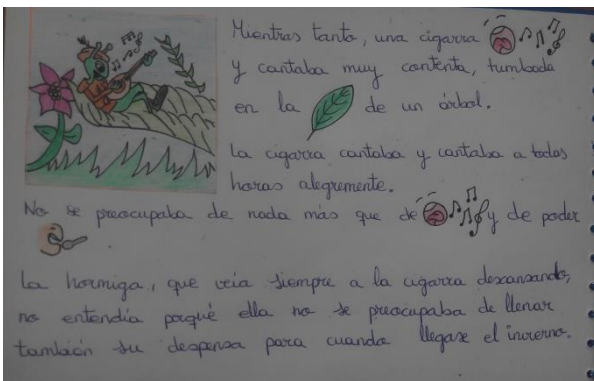 Mientras tanto, una cigarra
y cantaba muy contenta, tumbada
en la de un árbol.
La cigarra cantaba y cantaba a todas
horas alegremente.
No se preocupaba de nada más que de y de poder
La hormiga, que veia siempre a la cigarra descansando,
no entendía porqué ella no se preocupaba de llenar
también su despensa para cuando llegase el invierno.